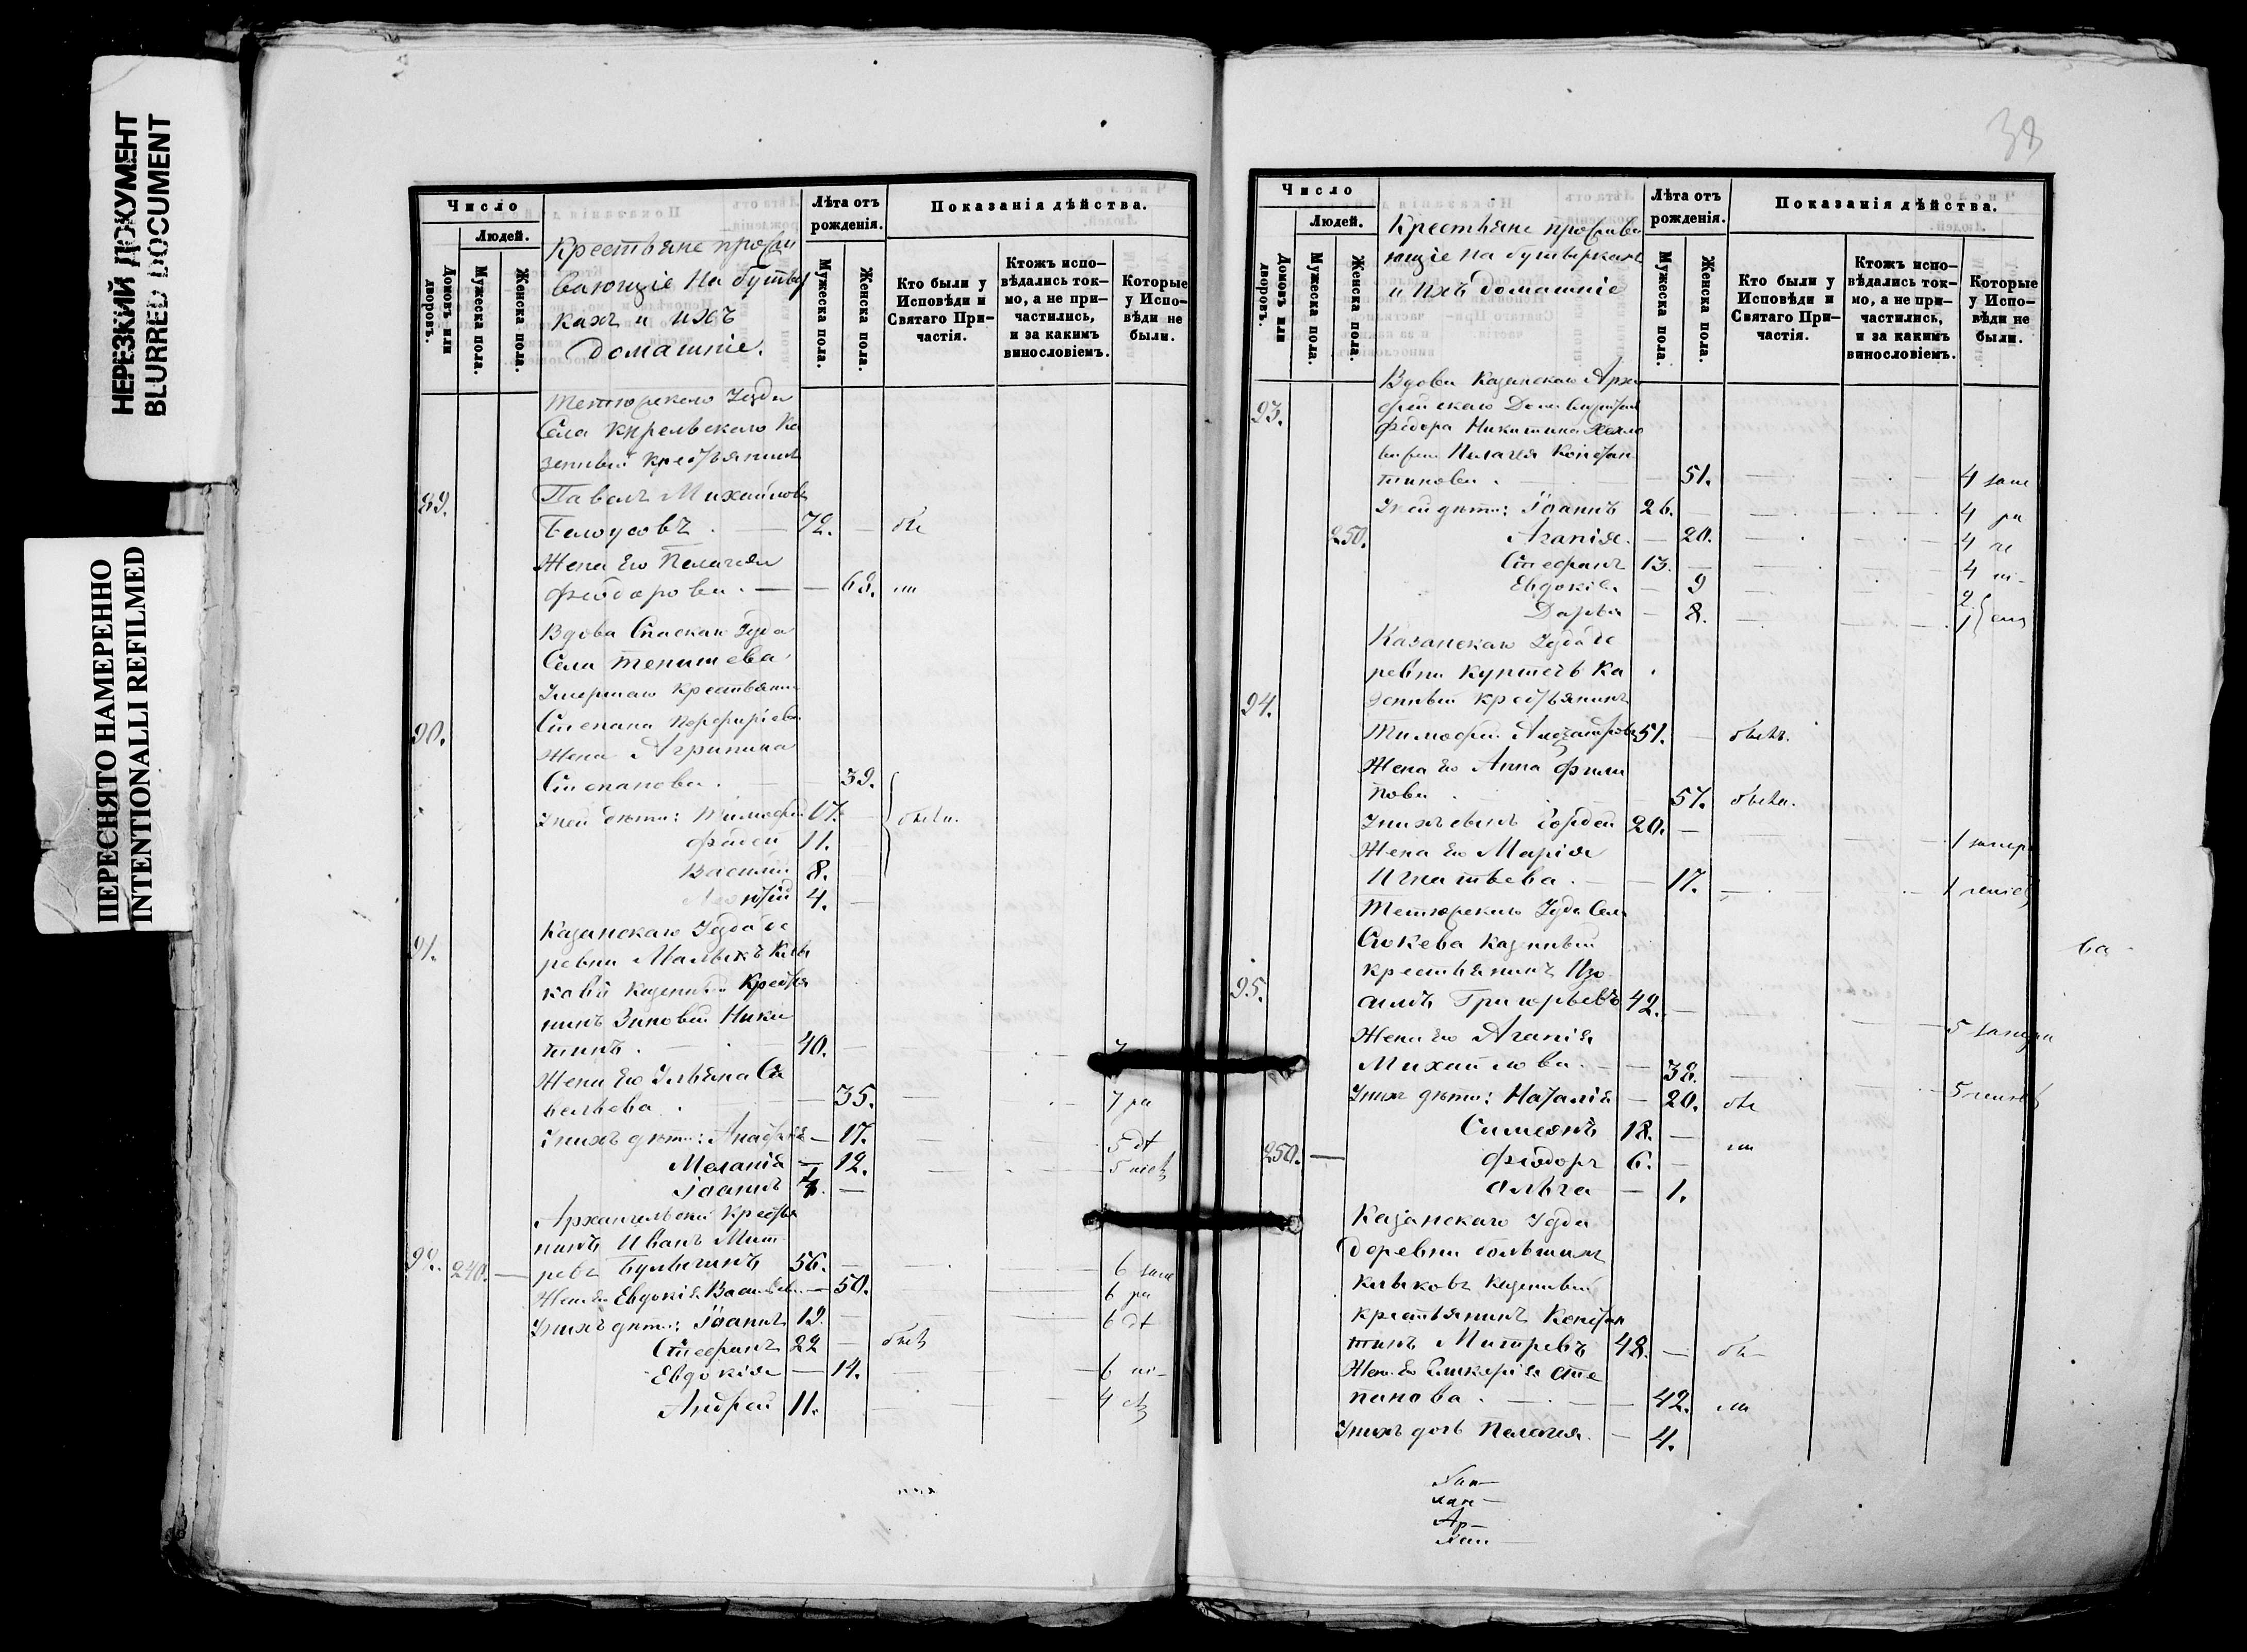 НЕРЕЗКИЙ ДОКУМЕНТ
BLURRED DOCUMENT
ПЕРЕСНЯТО НАМЕРЕННО
INTENTIONALLI REFILMED
Число
Людей.
Домовъ или дворовъ.
Мужеска пола.
Женска пола.
Крестьяне прожи
вающіе на бутыр
кахъ и ихъ
домашніе.
Лѣта отъ
рожденія.
Мужеска пола.
Женска пола.
Показанія дѣйства.
Кто были у
Исповѣди и
Святаго При-
частія.
Ктожъ испо-
вѣдались ток-
мо, а не при-
частились,
и за какимъ
винословіемъ.
Которые
у Испо-
вѣди не
были.
Тетюшскаго Уѣзда
Села Кирельскаго Ка
зенный крестьянинъ
89. Павелъ Михайловъ
Белоусовъ 72.
Жена его Пелагея
Ѳеодорова 68.
Вдова Спаскаго Уѣзда
Села
Умершаго крестьянина
90. Степана Порфирьева
жена Агрипина
Степанова 39.
У ней дѣти: Тимофей 17.
11.
Василій 8.
4.
Казанскаго Уѣзда де
91. ревни Малыхъ Клы
ковъ казенный крестья
нинъ Зиновей Ники
тинъ 40. 7
Жена его Ульяна Са
вельева 35. 7
У нихъ дѣти: 17. 5
Меланія 12. 5
Іоаннъ
Архангельскій крестья
нинъ Иванъ Мит
92. 240. ревъ Булыгинъ 56. 6
Жена его Евдокія Васильева 50. 6
У нихъ дѣти: Іоаннъ 19. 6
Стефанъ 22
Евдокія 14. 6
Андрей 11. 4
38
Число
Людей.
Домовъ или дворовъ.
Мужеска пола.
Женска пола.
Крестьяне прожива
ющіе на бутыркахъ
и ихъ домашніе
Лѣта отъ
рожденія.
Мужеска пола.
Женска пола.
Показанія дѣйства.
Кто были у
Исповѣди и
Святаго При-
частія.
Ктожъ испо-
вѣдались ток-
мо, а не при-
частились,
и за какимъ
винословіемъ.
Которые
у Испо-
вѣди не
были.
Вдова Казанскаго Архи
93. ерейскаго Дома
Ѳедора Никитина
Пелагея Констан
тинова 51. 4
У ней дѣти: Іоаннъ 26. 4
250. Агапія 20. 4
Стефанъ 13. 4
Евдокія 9 2
Дарья 8. 1
Казанскаго Уѣзда де
ревни Ка
94. зенный крестьянинъ
Тимофей Александровъ 51.
Жена его Анна Фили
пова 57.
У нихъ сынъ Гордей 20. 1
Жена его Марія
Игнатьева 17. 1
Тетюшскаго Уѣзда Села
Сюкева казенный
крестьянинъ Изо
95. симъ Григорьевъ 42. 5
Жена его Агапія
Михайлова 38. 5
У нихъ дѣти: Наталія 20.
Симеонъ 18.
250. Ѳеодоръ 6.
Ольга 1.
Казанскаго Уѣзда
деревни большихъ
Клыковъ казенный
крестьянинъ Констан
тинъ Митревъ 48.
Жена его Гликерія Сте
панова 42.
У нихъ дочь Пелагея 4.